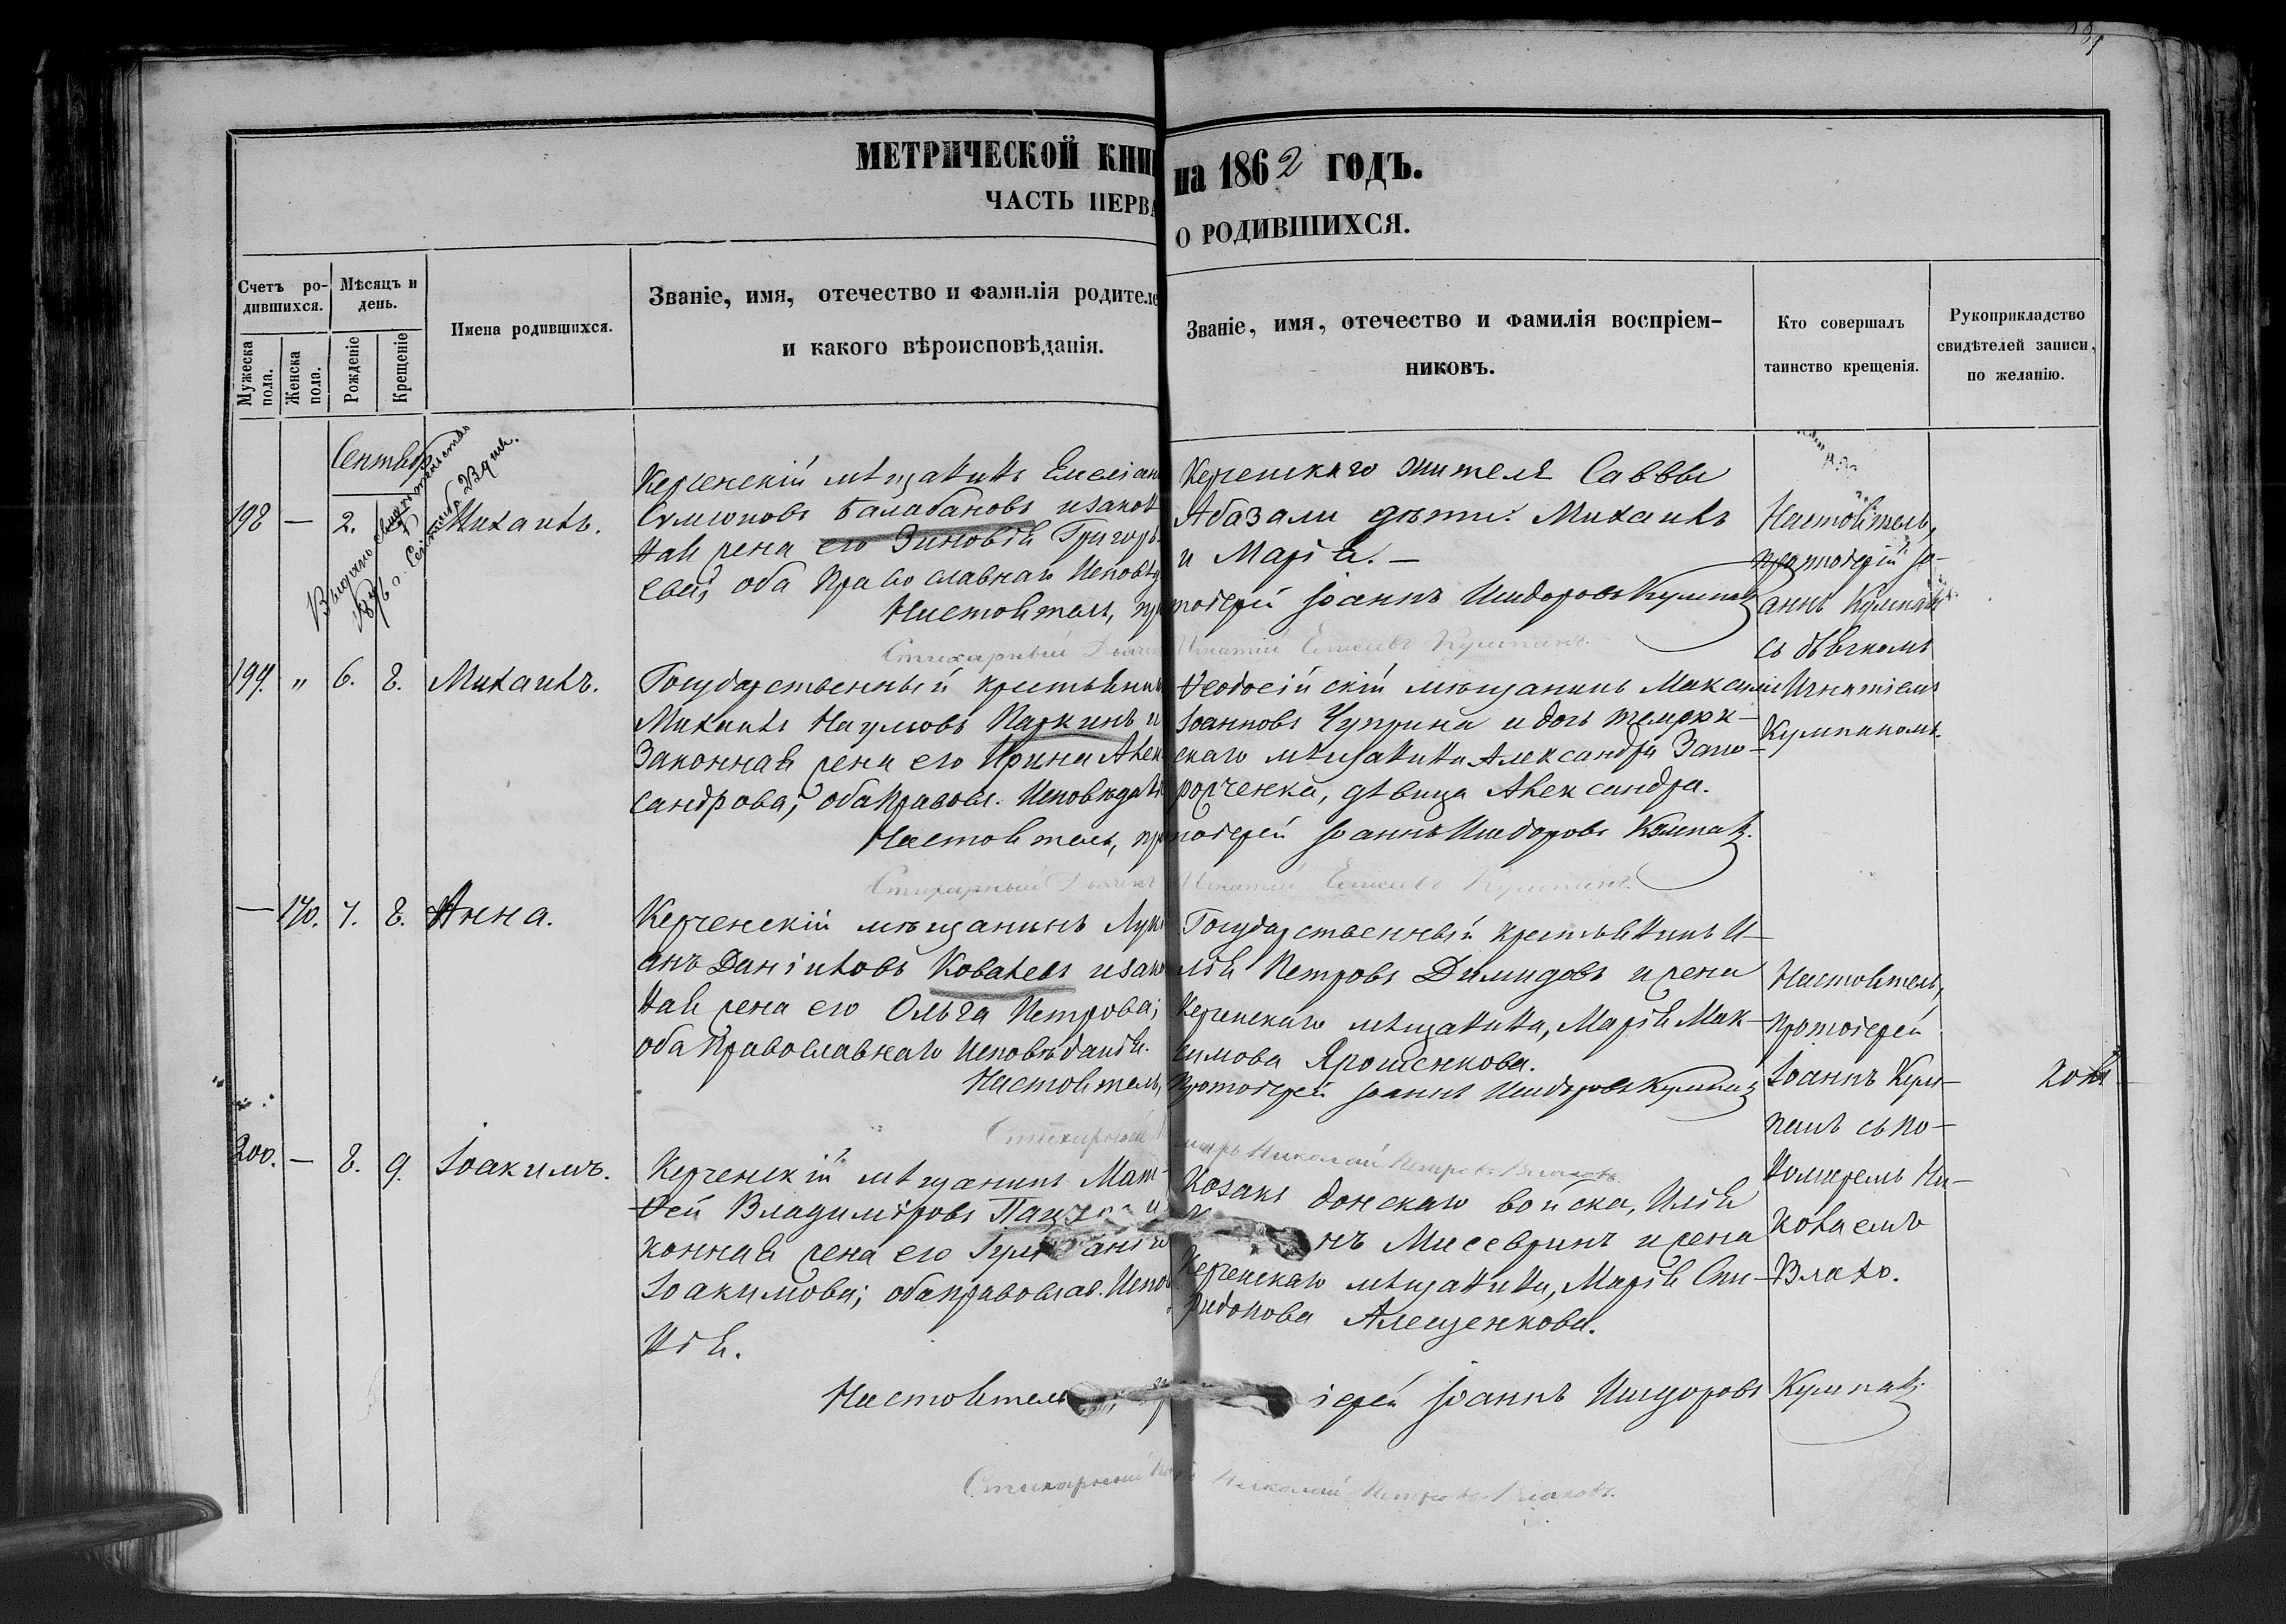 МЕТРИЧЕСКОЙ КНИ
на 1862 ГОДЪ.
ЧАСТЬ ПЕРВА
О РОДИВШИХСЯ.
Счетъ ро-
дившихся.
Мужеска
пола.
Женска
пола.
Мѣсяцъ и
день.
Рожденіе
Крещеніе
Имена родившихся.
Званіе, имя, отечество и фамилія родителе
и какого вѣроисповѣданія.
Званіе, имя, отечество и фамилія воспріем-
никовъ.
Кто совершалъ
таинство крещенія.
Рукоприкладство
свидѣтелей записи,
по желанію.
Выдано свидѣтельство
1876 г. Сентября
198 — 2. Михаилъ.
Керченскій мѣщанинъ
Балабановъ и закон
ная жена его Зиновія Григорь
ева, оба православнаго исповѣд
Керченскаго жителя Саввы
Абазали дѣти: Михаилъ
и Марія. —
Настоятель, протоіерей Іоаннъ Исидоровъ Кумпанъ
Стихарный Дьячекъ Игнатій Елисеевъ
Настоятель,
протоіерей Іо-
аннъ Кумпанъ
съ дьячкомъ
Игнатіемъ
199. " 6. 8. Михаилъ.
Государственный крестьянинъ
Михаилъ Наумовъ Паркинъ и
законная жена его Ирина Алек
сандрова; оба правосл. исповѣдан
Ѳеодосійскій мѣщанинъ Максимъ
Іоанновъ Чуприна и дочь темрюк-
скаго мѣщанина Александра Запо-
рожченка, дѣвица Александра.
Настоятель, протоіерей Іоаннъ Исидоровъ Кумпанъ.
Стихарный Дьячекъ Игнатій Елисеевъ
— 170. 7. 8. Анна.
Керченскій мѣщанинъ Луки
анъ Даніиловъ Ковалевъ и закон
ная жена его Ольга Петрова;
оба православнаго исповѣданія.
Государственный крестьянинъ И-
лія Петровъ Димидовъ и жена
керченскаго мѣщанина, Марія Мак-
симова Ярошенкова.
Настоятель, протоіерей Іоаннъ Исидоровъ Кумпанъ
Стихарный Николай Петровъ Влаховъ
Настоятель,
протоіерей
Іоаннъ Кум-
панъ съ по-
номаремъ Ни-
колаемъ
Влахо.
200. — 8. 9. Іоакимъ.
Керченскій мѣщанинъ Мат-
ѳей Владиміровъ
конная жена его
Іоакимова; оба православ. Испов
нія.
Козакъ донскаго войска, Илія
Мисевринъ и жена
керченскаго мѣщанина, Марія Спи-
ридонова Алещенкова.
Настоятель, іерей Іоаннъ Исидоровъ Кумпанъ.
Стихарный Николай Петровъ Влаховъ.